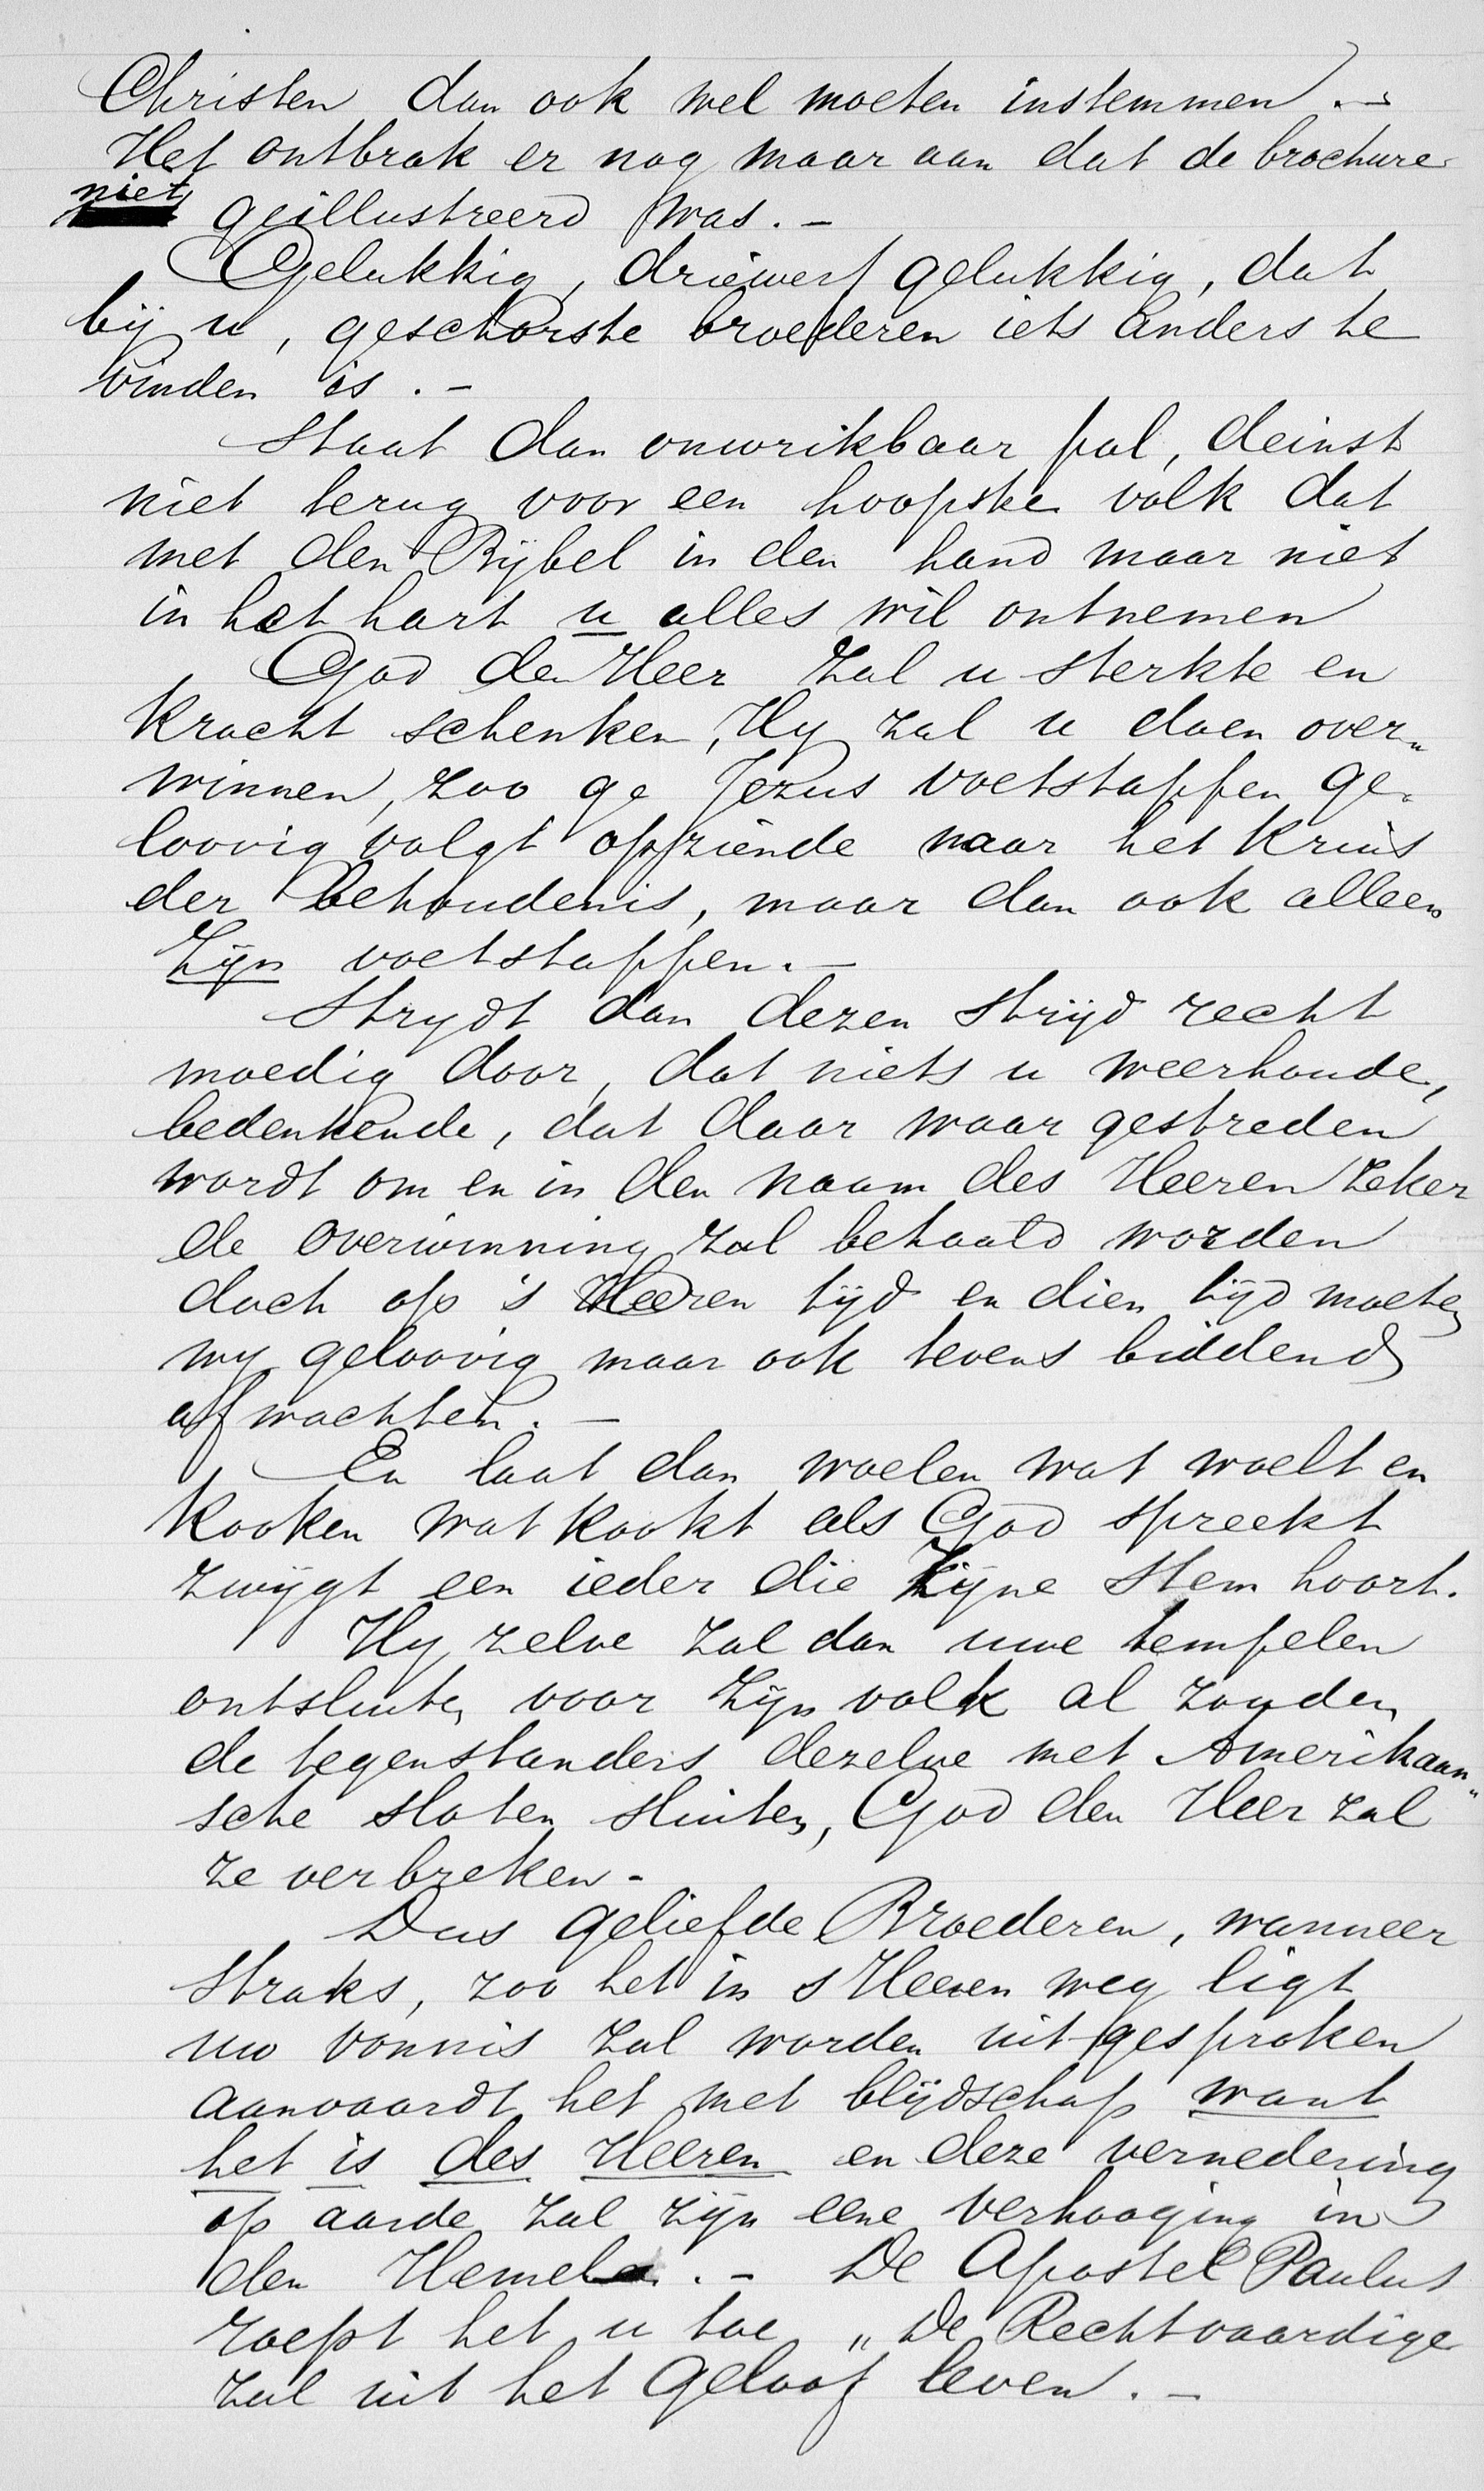 Christen dan ook wel moeten instemmen .-
Het ontbrak er nog maar aan dat de brochure
niet geillustreerd was. -
Gelukkig, driewerf gelukkig, dat
bij u, geschorste broederen iets anders te
vinden is . -
Staat dan onwrikbaar pal, deinst
niet terug voor een hoopske volk dat
met den Bijbel in den hand maar niet
in het hart u alles wil ontnemen
God de Heer zal u sterkte en
kracht schenken, Hy zal u doen over„
winnen, zoo ge Jezus voetstappen ge„
loovig volgt opziende naar het kruis
der behoudenis, maar dan ook alleen
Zijn voetstappen. -
Strydt dan dezen strijd recht
moedig door, dat niets u weerhoude,
bedenkende, dat daar waar gestreden
wordt om en in den naam des Heeren zeker
de overwinning zal behaald worden
doch op 's Heeren tijd en dien tijd moeten
wy geloovig maar ook tevens biddend
afwachten. -
En laat dan woelen wat woelt en
kooken wat kookt als God spreekt
zwijgt een ieder die Zijne stem hoort.
Hy zelve zal dan uwe tempelen
ontsluiten voor Zijn volk al zouden
de tegenstanders dezelve met Amerikaan„
sche sloten sluiten, God den Heer zal
ze verbreken -
Dus geliefde Broederen, wanneer
straks, zoo het in s Heeren weg ligt
uw vonnis zal worden uitgesproken
aanvaardt het met blijdschap want
het is des Heeren en deze vernedering
op aarde zal zijn eene verhooging in
den Hemel . - De Apostel Paulus
roept het u toe „De Rechtvaardige
zal uit het geloof leven. -